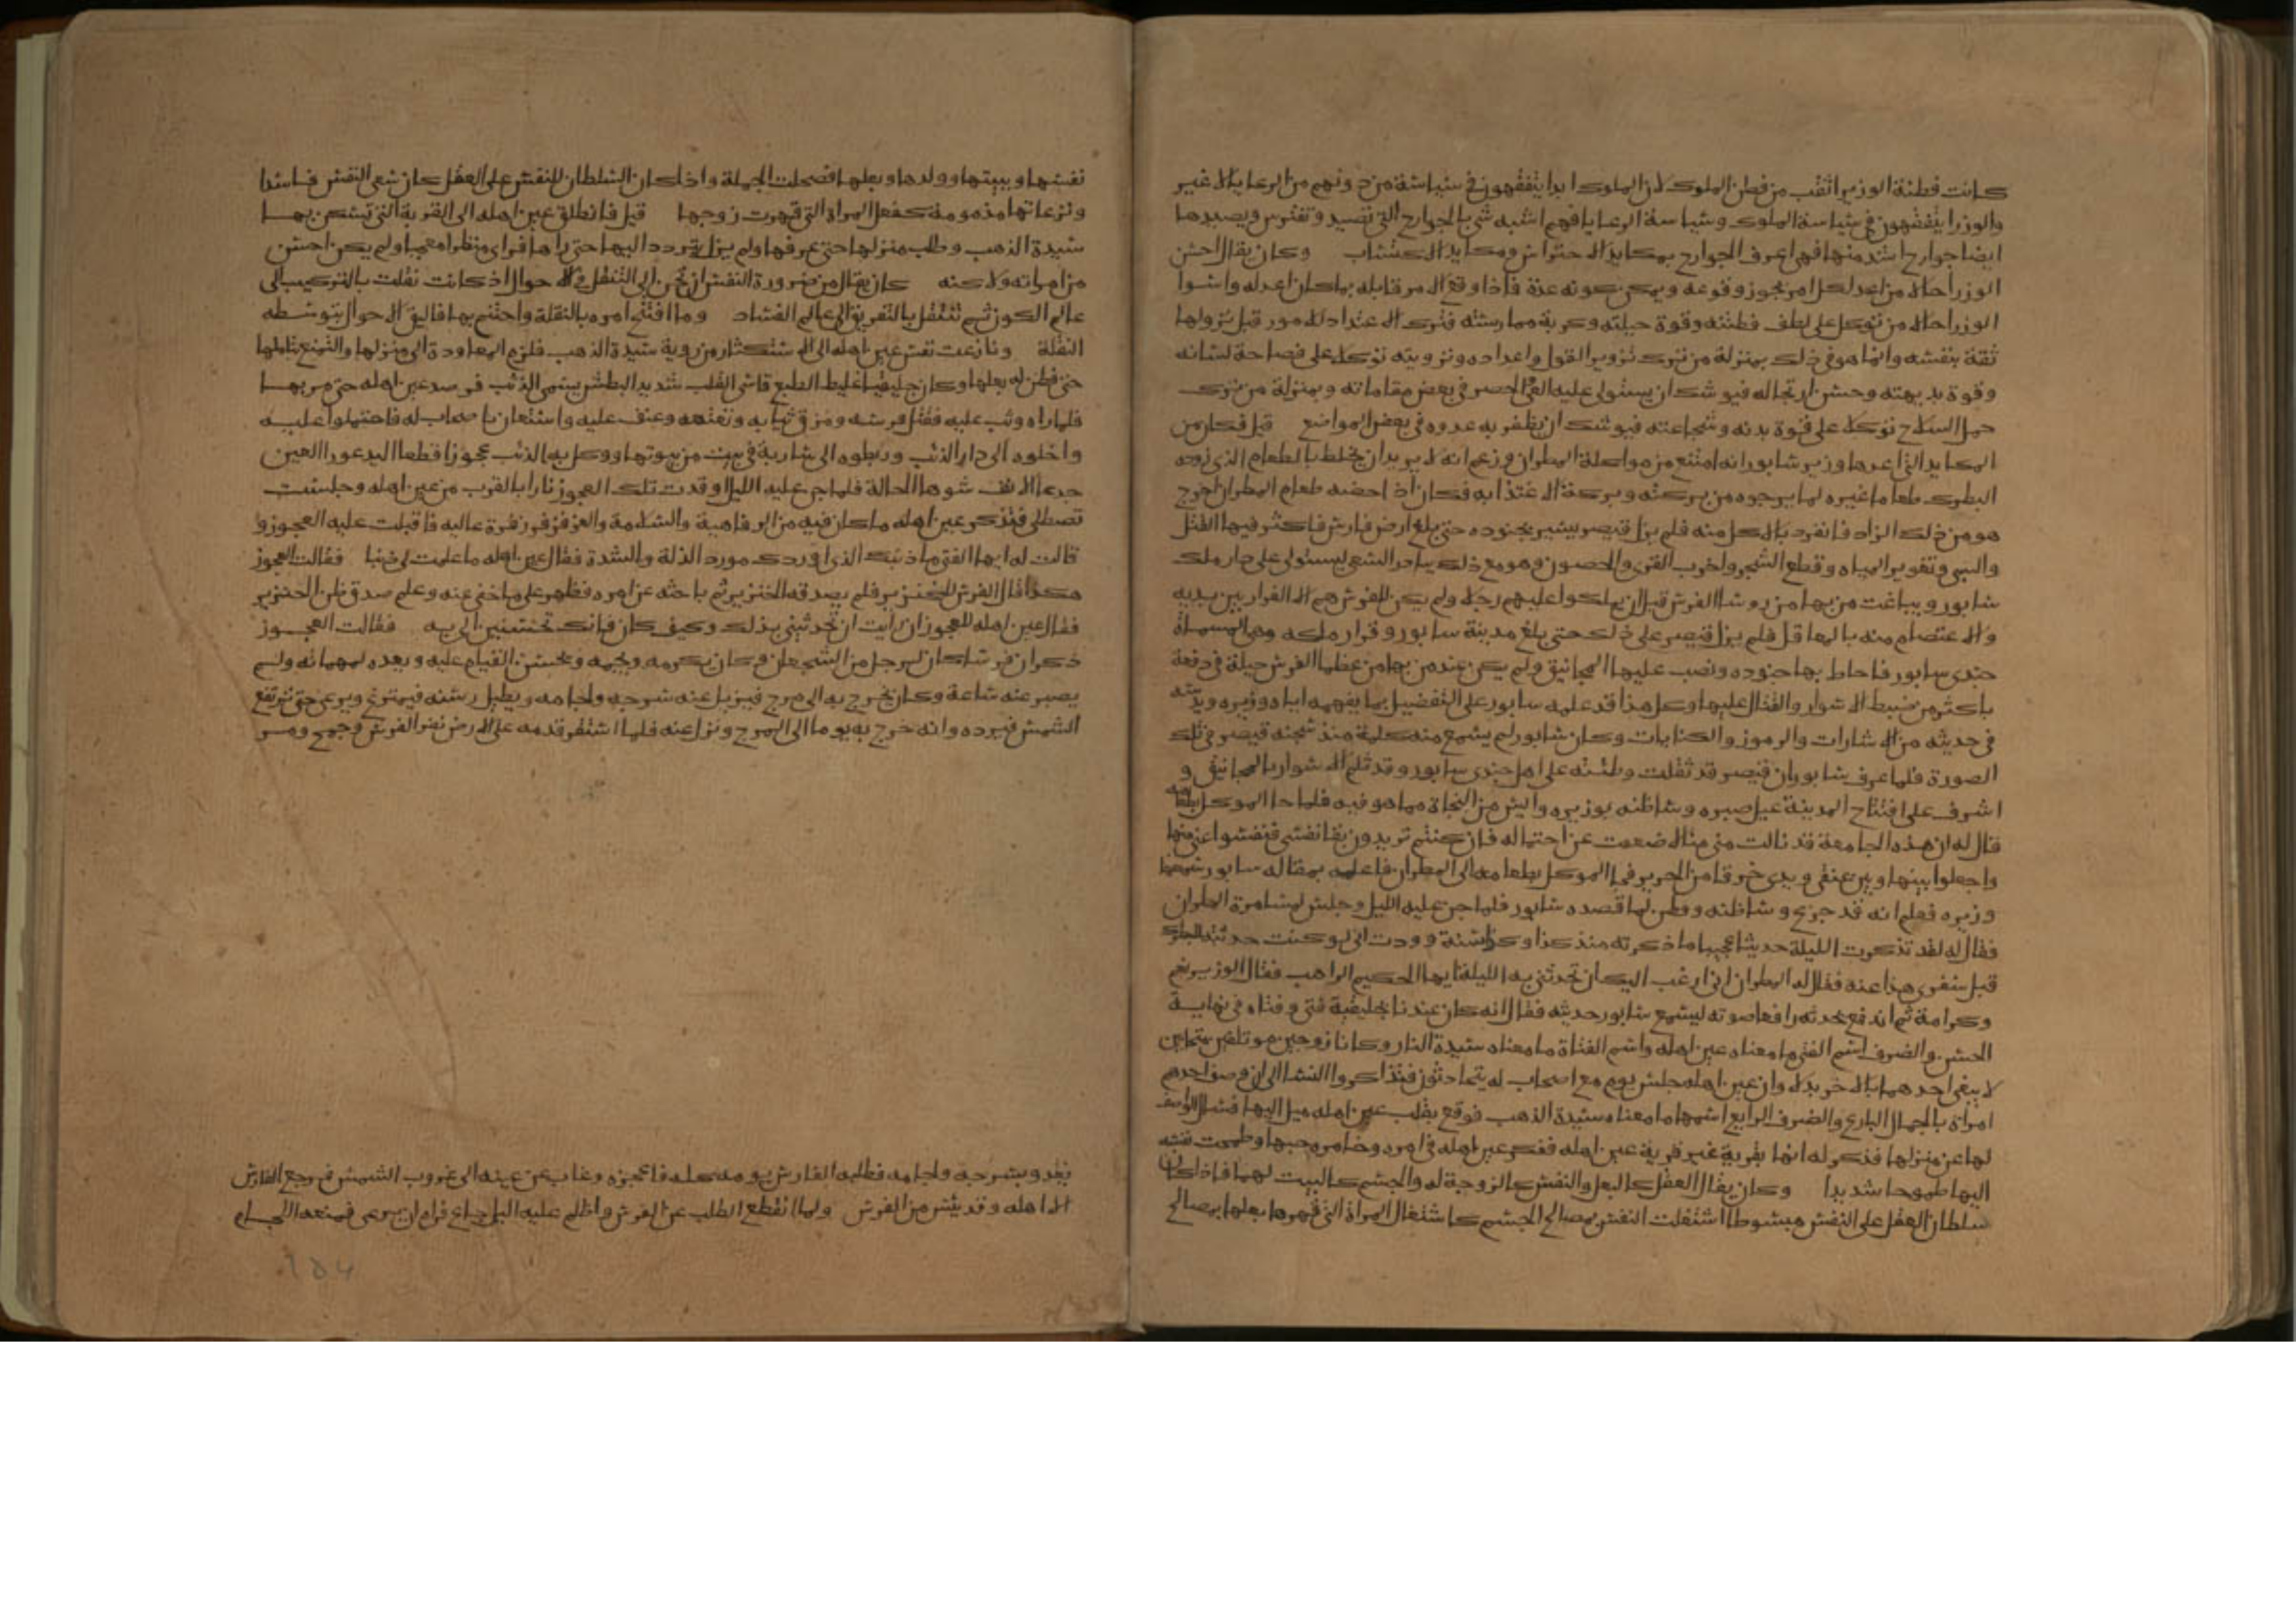 كانت فطنة الوزير اثقب من فطن الملوك لان الملوك ابدا يتفقهون في سياسة من دونهم من الرعايا لا غير
والوزرا يتفقهون في سياسة الملوك وسياسة الرعايا فهم اشبه شي بالجوارح التي تصيد وتفترس ويصيدها
ايضا جوارح اشد منها فهي اعرف الجوارح بمكايد الاحتراس ومكايد الاكتساب وكان يقال احسن
الوزرا حالا من اعد لكل امر يجوز وقوعه ويمكن كونه عدة فاذا وقع الامر قابله بما كان اعد له واسوا
الوزرا حالا من توكل على لطف فطنته وقوة حيلته وكربة ممارسته فترك الاعتداد للامور قبل نزولها
ثقة بنفسه وانما هو في ذلك بمنزلة من ترك تزوير القول واعداده وترويته توكلا على فصاحة لسانه
وقوة بديهته وحسن ارتجاله فيوشك ان يستولي عليه العي الحصر في بعض مقاماته وبمنزلة من ترك
حمل السلاح توكلا على قوة بدنه وشجاعته فيوشك ان يظفر به عدوه في بعض المواضع قيل فكان من
المكايد التي اعدها وزير شابور انه امتنع من مواكلة المطران وزعم انه لا يريد ان يخلط بالطعام الذي زوده
البطرك طعاما غيره لما يرجوه من بركته وبركة الاغتذا به فكان اذ احضر طعام المطران اخرج
هو من ذلك الزاد فانفرد بالاكل منه فلم يزل قيصر يسير بجنوده حتى بلغ ارض فارس فاكثر فيها القتل
والسبي وتغوير المياه وقطع الشجر واخرب القرى والحصون وهو مع ذلك يبادر السعي ليستولي على دار ملك
شابور ويباغت من بها من روسا الفرس قبل ان يملكوا عليهم رجلا ولم يكن للفرس هم الا الفرار بين يديه
والاعتصام منه بالمعاقل فلم يزل قيصر على ذلك حتى بلغ مدينة سابور وقرار ملكه وهي المسماة
جندي سابور فاحاط بها جنوده ونصب عليها المجانيق ولم يكن عند من بها من عظما الفرس حيلة في دفعه
باكثر من ضبط الاسوار والقتال عليها وكل هذا قد علمه سابور على التفصيل بما يفهمه اياه وزيره ويبثه
في حديثه من الاشارات والرموز والكنايات وكان شابور لم يسمع منه كلمة منذ سجنه قيصر في تلك
الصورة فلما عرف شابور ان قيصر قد ثقلت وطئته على اهل جندي سابور وقد ثلم الاسوار بالمجانيق و
اشرف على افتتاح المدينة عيل صبره وسا ظنه بوزيره وايس من النجاة مما هو فيه فلما جا الموكل بطعامه
قال له ان هذه الجامعة قد نالت مني منالا ضعفت عن احتماله فان كنتم تريدون بقا نفسي فنفسوا عني منها
واجعلوا بينها وبين عنقي ويدي خرقا من الحرير فجا الموكل بطعامه الى المطران فاعلمه بمقالة سابور
وزيره فعلم انه قد جزع وسا ظنه وفطن لما قصده شابور فلما جن عليه الليل وجلس لمسامرة المطران
فقال له لقد تذكرت الليلة حديثا عجيبا ما ذكرته منذ كذا وكذا سنة ووددت اني لو كنت حدثته البطرك
قبل سفري هذا عنه فقال له المطران اني ارغب اليك ان تحدثني به الليلة ايها الحكيم الراهب فقال الوزير نعم
وكرامة ثم اندفع يحدثه رافعا صوته ليسمع شابور حديثه فقال انه كان عندنا بجليقية فتى وفتاه في نهاية
الحسن والضرف اسم الفتى ما معناه عين اهله واسم الفتاة ما معناه سيدة النار وكانا زوجين موتلفين متحابين
لا يبغي احدهما بالاخر بدلا وان عين اهله جلس يوم مع اصحاب له يتحادثون فتذاكروا النسا الى ان وصف احدهم
امراة بالجمال البارع والضرف الرايع اسمها ما معناه سيدة الذهب فوقع بقلب عين اهله ميل اليها فسال الواصف
لها عن منزلها فذكر له انها بقرية غير قرية عين اهله ففكر عين اهله في امره وخامره حبها وطمحت نفسه
اليها طموحا شديدا وكان يقال العقل كالبعل والنفس كالزوجة له والجسم كالبيت لهما فاذا كان
سلطان العقل على النفس مبسوطا اشتغلت النفس بمصالح الجسم كاشتغال المراة التي قهرها بعلها بمصالح
نفسها وبيتها وولدها وبعلها فصحت الجملة واذا كان السلطان للنفس على العقل كان سعي النفس فاسدا
ونزعاتها مذمومة كفعل المراة التي قهرت زوجها قيل فانطلق عين اهله الى القرية التي تسكن بها
سيدة الذهب وطلب منزلها حتى عرفها ولم يزل يتردد اليها حتى راها فراى منظرا معجبا ولم يكن احسن
من امراته ولاكنه كان يقال من ضرورة النفس ان تحن الى التنقل في الاحوال اذ كانت نقلت بالتركيب الى
عالم الكون ثم تنتقل بالتفريق الى عالم الفساد وما افتتح امره بالنقلة واختتم بها فاليق الاحوال بتوسطه
النقلة ونازعت نفس عين اهله الى الاستكثار من روية سيدة الذهب فلزم المعاودة الى منزلها والتمتع بتاملها
حتى فطن له بعلها وكان جليقيا غليظ الطبع قاسي القلب شديد البطش يسمى الذئب فرصد عين اهله حتى مر بها
فلما راه وثب عليه فقتل فرسه ومزق ثيابه وعنف عليه واستعان باصحاب له فاحتملوا عليه
وادخلوه الى دار الذئب وربطوه الى سارية في بيت من بيوتها ووكل به الذئب عجوزا قطعا اليد عورا العين
جدعا الانف شوها الحالة فلما جن عليه الليل اوقدت تلك العجوز نارا بالقرب من عين اهله وجلست
تصطلي فتذكر عين اهله ما كان فيه من الرفاهية والسلامة والعز فزفر زفرة عاليه فاقبلت عليه العجوز و
قالت له ايها الفتى ما ذنبك الذي اوردك مورد الذلة والشدة فقال عين اهله ما علمت لي ذنبا فقالت العجوز
هكذا قال الفرس للخنزير فلم يصدقه الخنزير ثم باحثه عن امره فظهر على ما خفي عنه وعلم صدق ظن الخنزير
فقال عين اهله للعجوز ان رايت ان تحدثيني بذلك وكيف كان فانك تحسنين الي به فقالت العجوز
ذكر ان فرسا كان لرجل من الشجعان وكان يكرمه ويجمه ويحسن القيام عليه ويعده لمهماته ولم
يصبر عنه ساعة وكان يخرج به الى مرج فيزيل عنه سرجه ولجامه ويطيل رسنه فيتمرغ ويرعى حتى ترتفع
الشمس فيرده وانه خرج به يوما الى المرج ونزل عنه فلما استقر قدمه على الارض نفر الفرس وجمح ومر
يغدو بسرجه ولجامه فطلبه الفارس يومه كله فاعجزه وغاب عن عينه الى غروب الشمس فرجع الفارس
الى اهله وقد يئس من الفرس ولما انقطع الطلب عن الفرس واظلم عليه اليل جاع فرام ان يرعى فمنعه اللجام
184